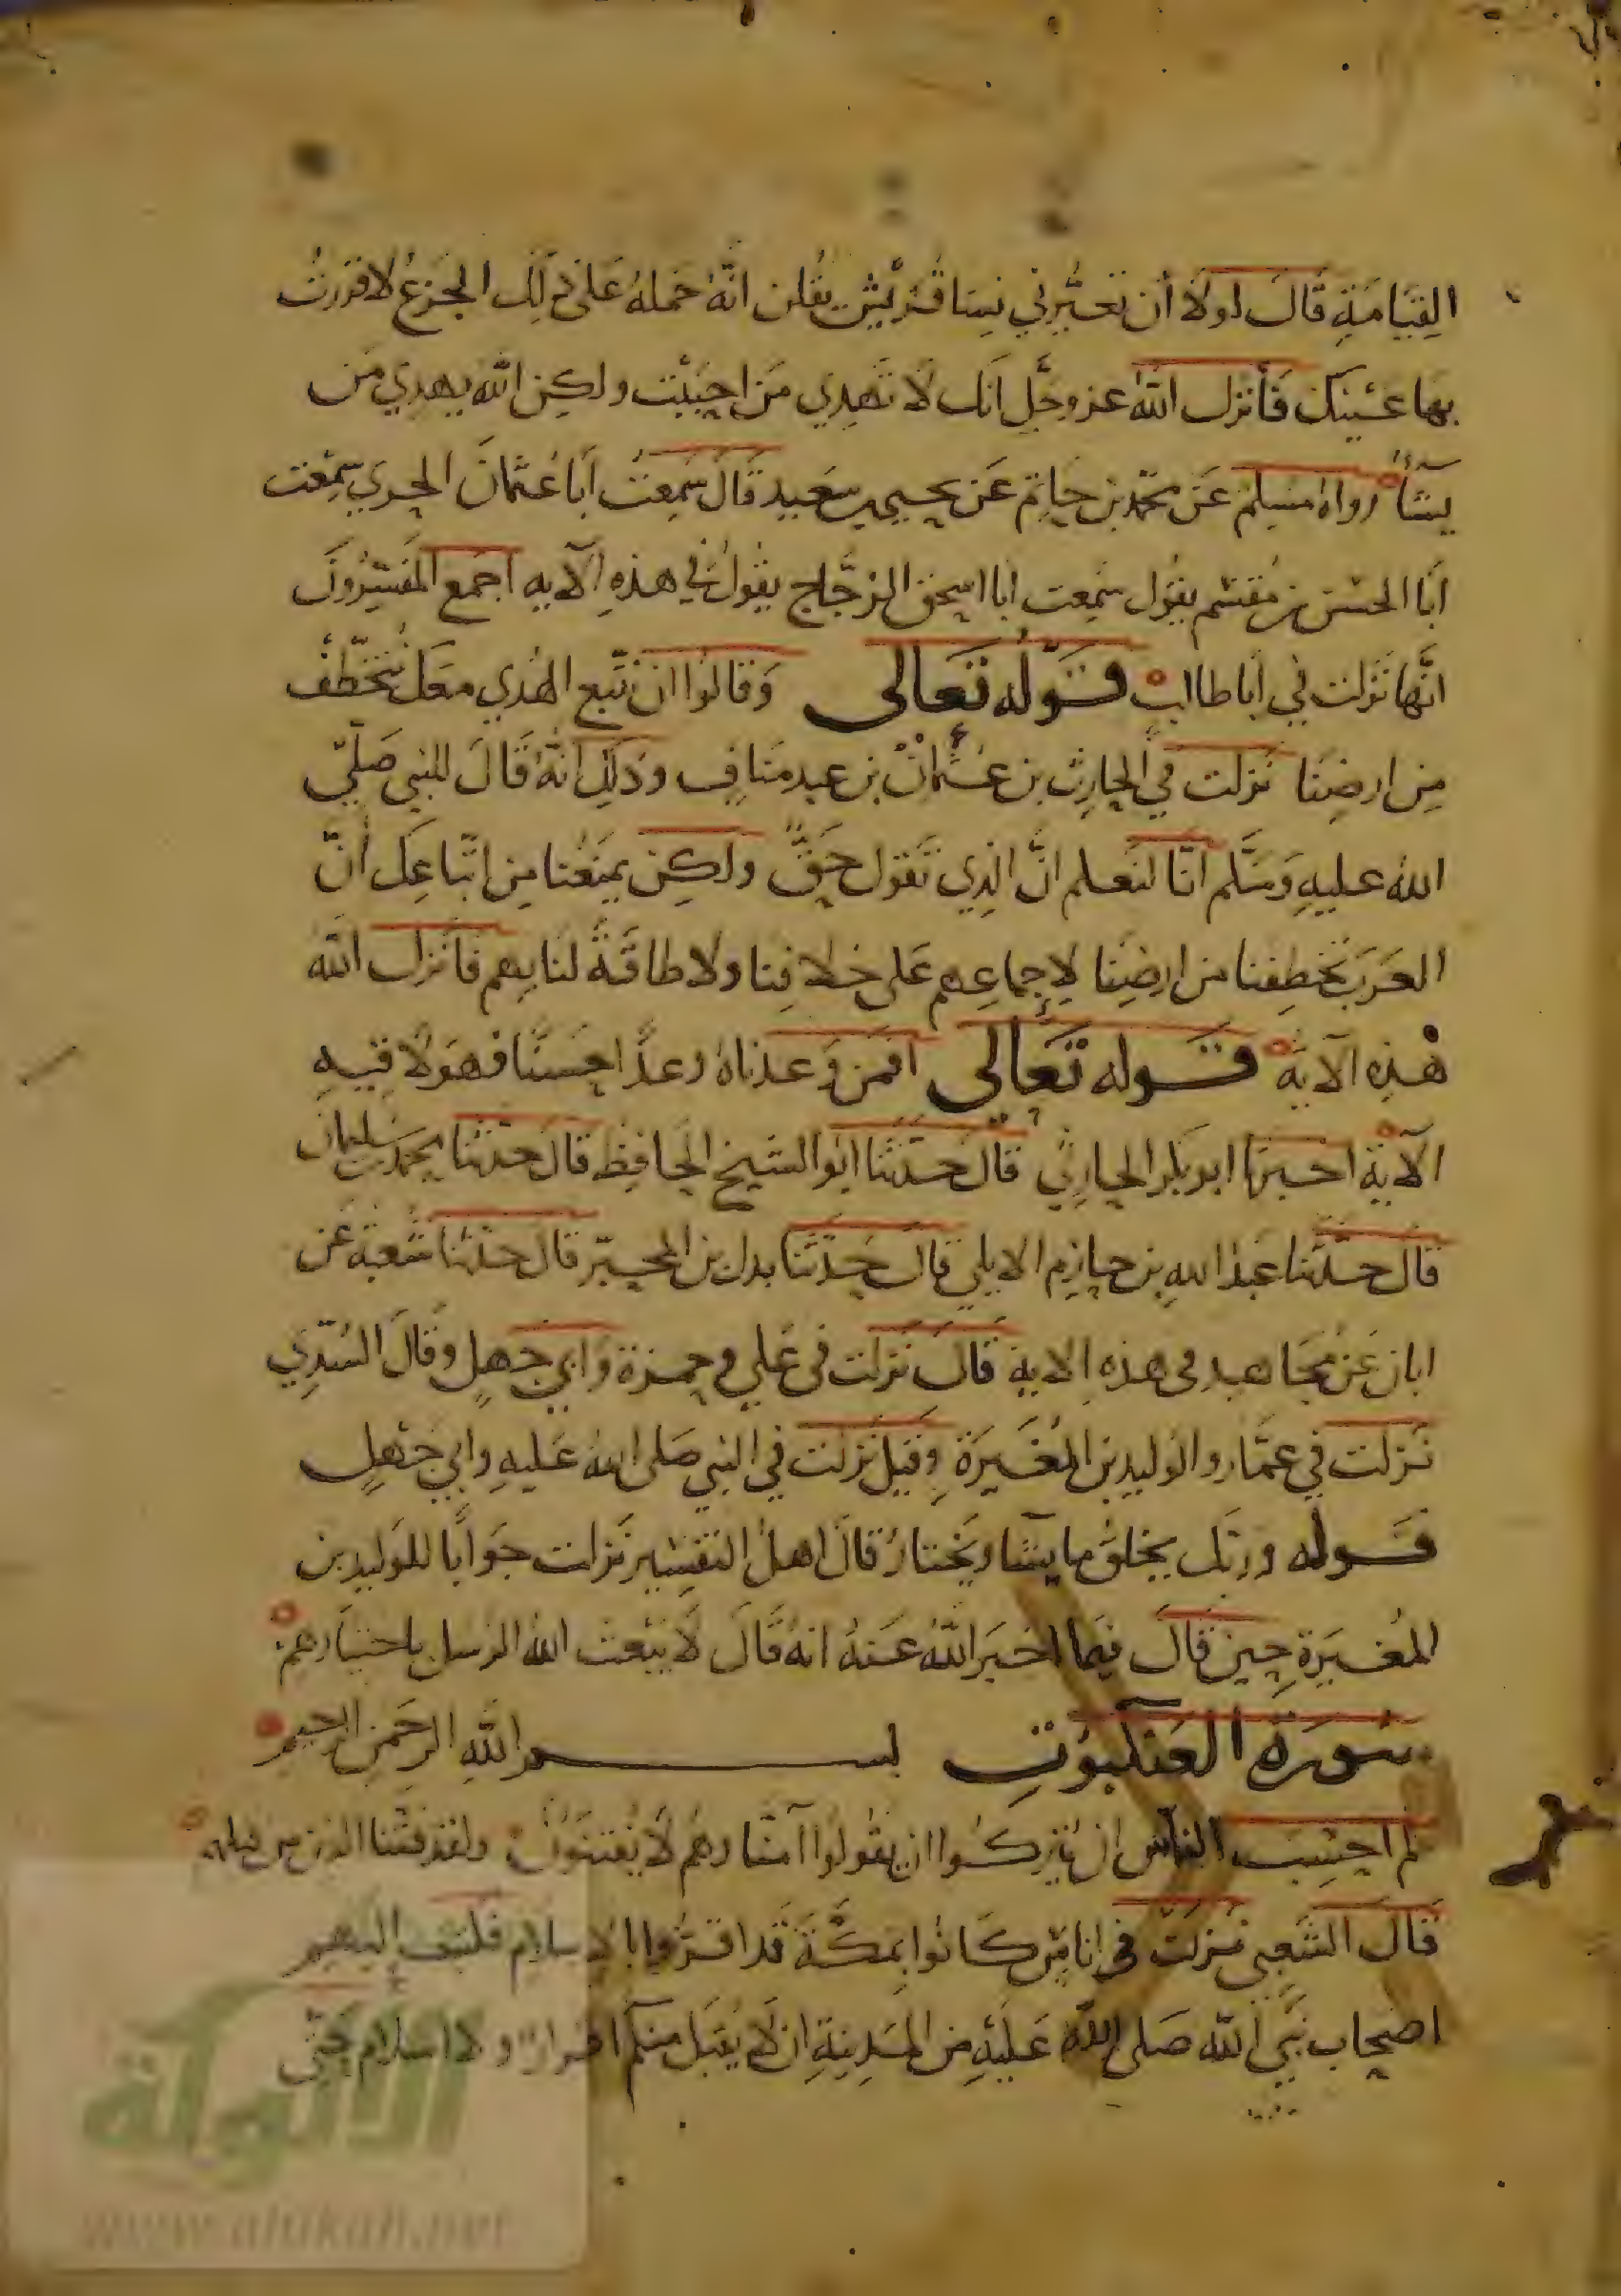 القِيَامَةِ قَالَ لولَا أن تعَيّرني نِسَا قُرَيْش يقُلن انّهُ حَملهُ عَلى ذلِك الجَزعُ لاقرَرتُ
بِهَا عَيْنِكَ فَأنزل اللهُ عز وجَل انَك لَا تَهدِي مَن احبَبْت ولكِن الله يهدِي مَن
يشَآءُ رواهُ مسِلم عَن محمّد بن حَاتِم عَن يحيى بن سَعِيد قَالَ سَمِعتُ أبَا عُثمَانَ الحيري سمِعت
أبَا الحسَن بن مُقسَم يقُول سَمِعت ابا اسحق الزجَّاج يقُولُ في هذهِ الآيه اجمَع المفَسِّرُونَ
انّها نَزلت في أبا طالب قَولُه تَعَالى وَقالوُا ان نتّبع الهُدي معَك نُتَخَطّف
مِن ارضِنَا نَزلت في الحارِث بن عُثمان بن عبد منَافٍ وذَلِك انّهُ قَالَ للنبي صَلّي
الله عليهِ وَسَلَّم انّا لنَعلم انَّ الذِي تَقول حَقٌّ ولكِن يمنَعُنا مِن اتّباعِك أنّ
العَرَبَ تخَطِفنا من ارضِنَا لإجماعِهم عَلى خلافِنا ولا طاقَةً لنا بِهم فأنزل اللهُ
هذِهِ الآيَة قَوله تَعَالى افمَن وَعدناهُ وعدًا حسَنًا فهوَ لاقيهِ
الآيَة اخبرَنا ابو بَكر الحارِثي قالَ حَدّثَنا ابُو الشيخ الحَافِظ قالَ حدّثنَا محمد بن سُليمان
قالَ حدّثنا عَبد اللهِ بن حازِم الايلي قالَ حَدّثنَا بدل بن المحبّر قالَ حدّثنا شُعبَة عَن
ابان عَن مُجَاهِد في هذه الاية قالَ نَزلت في عَلي وحمزة وابي جهلٍ وقالَ السُدِّي
نَزلت في عمَّار والوليد بن المُغِيرَةِ وقيل نزَلت في النبي صَلى اللهُ عَليهِ وابي جَهلٍ
قَوله وربّك يخلقُ ما يشَآ ويَختارُ قالَ اهلُ التفسِير نَزلت جوَابًا للوَليد بن
المُغِيرَةِ حِين قالَ فيمَا اخبَرَ اللهُ عَنهُ انهُ قَالَ لَا يَبْعث اللهُ الرُسل باختيارِهمْ
سُورَة العَنكبُوت بسم اللهِ الرحمن الرحيم
الم احسِبَ الناس ان يُترَكُوا ان يقولُوا آمنّا وهُم لَا يُفتنَون ولقد فتَنّا الذين من قبلهم
قَالَ الشَعبي نَزلَت في اناسٍ كَانُوا بِمكّةَ قَد اقرُّوا بالإسلام فكتب إليهم
اصحاب نَبي اللهِ صَلى اللهُ عَليْهِ مِن المَدِينَةِ ان لَا يُقبَل منكم اقرارٌ ولا اسلام حَتّى
الألوكة
www.alukah.net